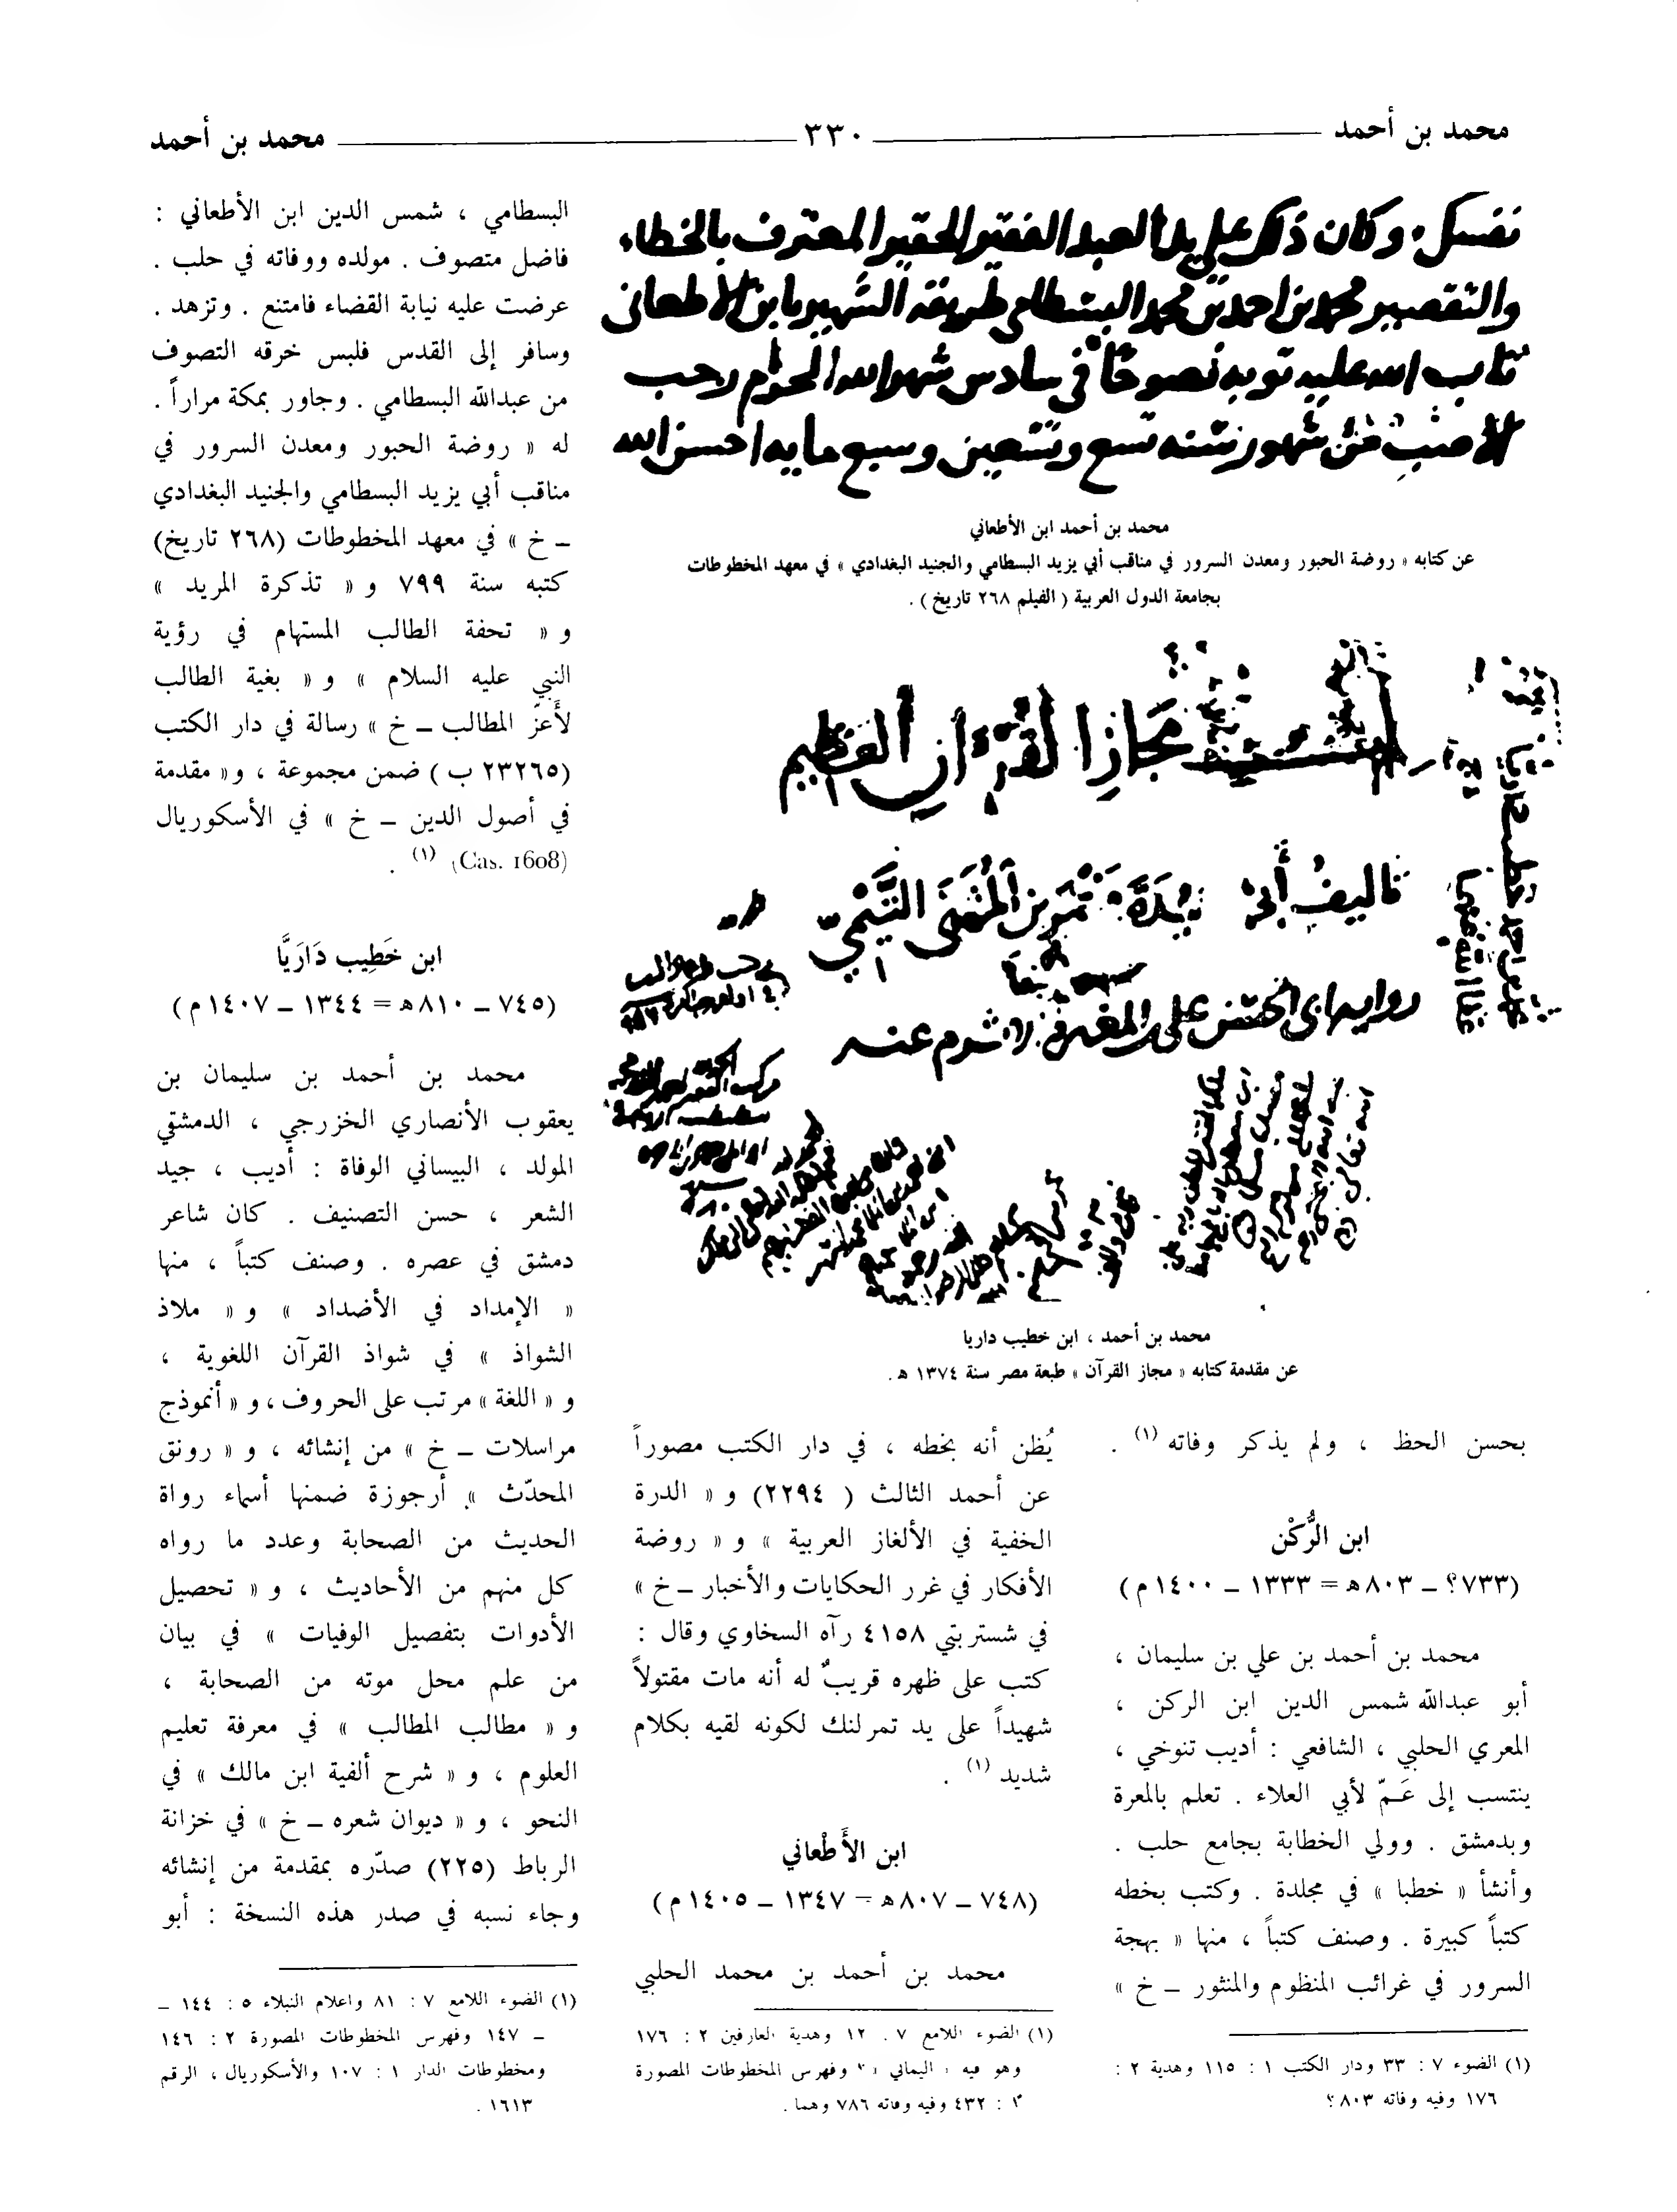 محمد بن أحمد ٣٣٠ محمد بن أحمد
والتقصير محمد بن احمد بن محمد البسطامي طريقة الشهير بابن الاطعاني
تاب الله عليه توبة نصوحا في سادس شهر الله الحرام رجب
تسع وتسعين وسبع مايه احسن الله
محمد بن أحمد ابن الأطعاني
عن كتابه « روضة الحبور ومعدن السرور في مناقب أبي يزيد البسطامي والجنيد البغدادي » في معهد المخطوطات
بجامعة الدول العربية ( الفيلم ٢٦٨ تاريخ ) .
مجاز القرآن العظيم
تاليف أبي
بن المثنى التيمي
محمد بن أحمد ، ابن خطيب داريا
عن مقدمة كتابه « مجاز القرآن » طبعة مصر سنة ١٣٧٤ ه .
بحسن الحظ ، ولم يذكر وفاته (١) .
ابن الرُّكْن
(٧٣٣؟ – ٨٠٣ ه = ١٣٣٣ – ١٤٠٠ م)
محمد بن أحمد بن علي بن سليمان ،
أبو عبدالله شمس الدين ابن الركن ،
المعري الحلبي ، الشافعي : أديب تنوخي ،
ينتسب إلى عَمّ لأبي العلاء . تعلم بالمعرة
وبدمشق . وولي الخطابة بجامع حلب .
وأنشأ « خطبا » في مجلدة . وكتب بخطه
كتباً كبيرة . وصنف كتباً ، منها « بهجة
السرور في غرائب المنظوم والمنثور – خ »
(١) الضوء ٧ : ٣٣ ودار الكتب ١ : ١١٥ وهدية ٢ :
١٧٦ وفيه وفاته ٨٠٣ ؟
يُظن أنه بخطه ، في دار الكتب مصوراً
عن أحمد الثالث ( ٢٢٩٤) و « الدرة
الخفية في الألغاز العربية » و « روضة
الأفكار في غرر الحكايات والأخبار – خ »
في شستربتي ٤١٥٨ رآه السخاوي وقال :
كتب على ظهره قريبٌ له أنه مات مقتولاً
شهيداً على يد تمرلنك لكونه لقيه بكلام
شديد (١) .
ابن الأَطْعاني
(٧٤٨ – ٨٠٧ ه = ١٣٤٧ – ١٤٠٥ م)
محمد بن أحمد بن محمد الحلبي
(١) الضوء اللامع ٧ . ١٢ وهدية العارفين ٢ : ١٧٦
وهو فيه « اليماني » وفهرس المخطوطات المصورة
٢ : ٤٣٢ وفيه وفاته ٧٨٦ وهما .
البسطامي ، شمس الدين ابن الأطعاني :
فاضل متصوف . مولده ووفاته في حلب .
عرضت عليه نيابة القضاء فامتنع . وتزهد .
وسافر إلى القدس فلبس خرقه التصوف
من عبدالله البسطامي . وجاور بمكة مراراً .
له « روضة الحبور ومعدن السرور في
مناقب أبي يزيد البسطامي والجنيد البغدادي
– خ » في معهد المخطوطات (٢٦٨ تاريخ)
كتبه سنة ٧٩٩ و « تذكرة المريد »
و « تحفة الطالب المستهام في رؤية
النبي عليه السلام » و « بغية الطالب
لأَعزّ المطالب – خ » رسالة في دار الكتب
(٢٣٢٦٥ ب ) ضمن مجموعة ، و« مقدمة
في أصول الدين – خ » في الأسكوريال
(Cas. 1608) (١) .
ابن خَطِيب دَارَيَّا
(٧٤٥ – ٨١٠ ه = ١٣٤٤ – ١٤٠٧ م)
محمد بن أحمد بن سليمان بن
يعقوب الأنصاري الخزرجي ، الدمشقي
المولد ، البيساني الوفاة : أديب ، جيد
الشعر ، حسن التصنيف . كان شاعر
دمشق في عصره . وصنف كتباً ، منها
« الإمداد في الأضداد » و « ملاذ
الشواذ » في شواذ القرآن اللغوية ،
و « اللغة » مرتب على الحروف ، و « أنموذج
مراسلات – خ » من إنشائه ، و « رونق
المحدّث » أرجوزة ضمنها أسماء رواة
الحديث من الصحابة وعدد ما رواه
كل منهم من الأحاديث ، و « تحصيل
الأدوات بتفصيل الوفيات » في بيان
من علم محل موته من الصحابة ،
و « مطالب المطالب » في معرفة تعليم
العلوم ، و « شرح ألفية ابن مالك » في
النحو ، و « ديوان شعره – خ » في خزانة
الرباط (٢٢٥) صدّره بمقدمة من إنشائه
وجاء نسبه في صدر هذه النسخة : أبو
(١) الضوء اللامع ٧ : ٨١ واعلام النبلاء ٥ : ١٤٤ –
– ١٤٧ وفهرس المخطوطات المصورة ٢ : ١٤٦
ومخطوطات الدار ١ : ١٠٧ والأسكوريال ، الرقم
١٦١٣ .